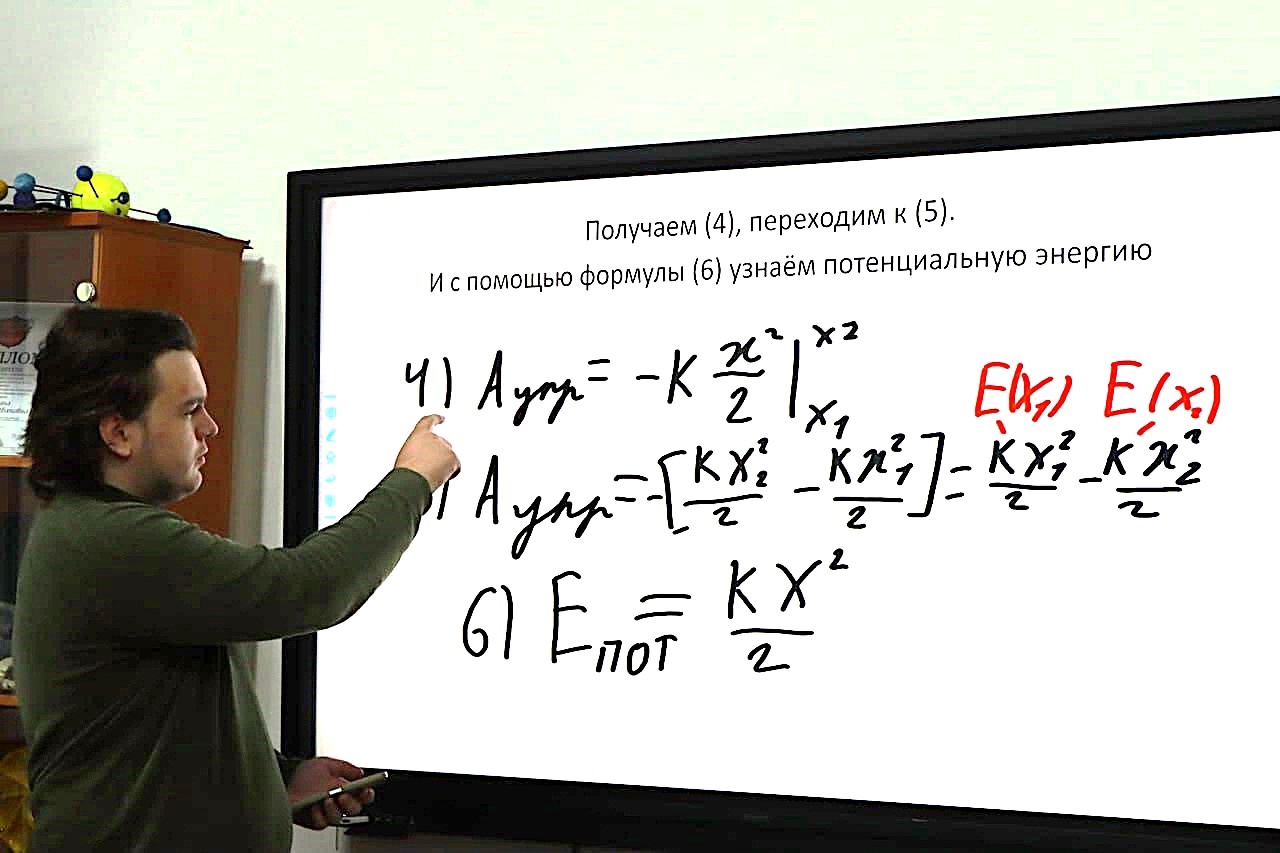 Получаем (4), переходим к (5).
И с помощью формулы (6) узнаём потенциальную энергию
4) Aупр = -K x²/2 |x₁ x2
E(x₁) E(x₂)
) Aупр = -[KX₂²/2 - Kx₁²/2] = KX₁²/2 - Kx₂²/2
6) Eпот = KX²/2